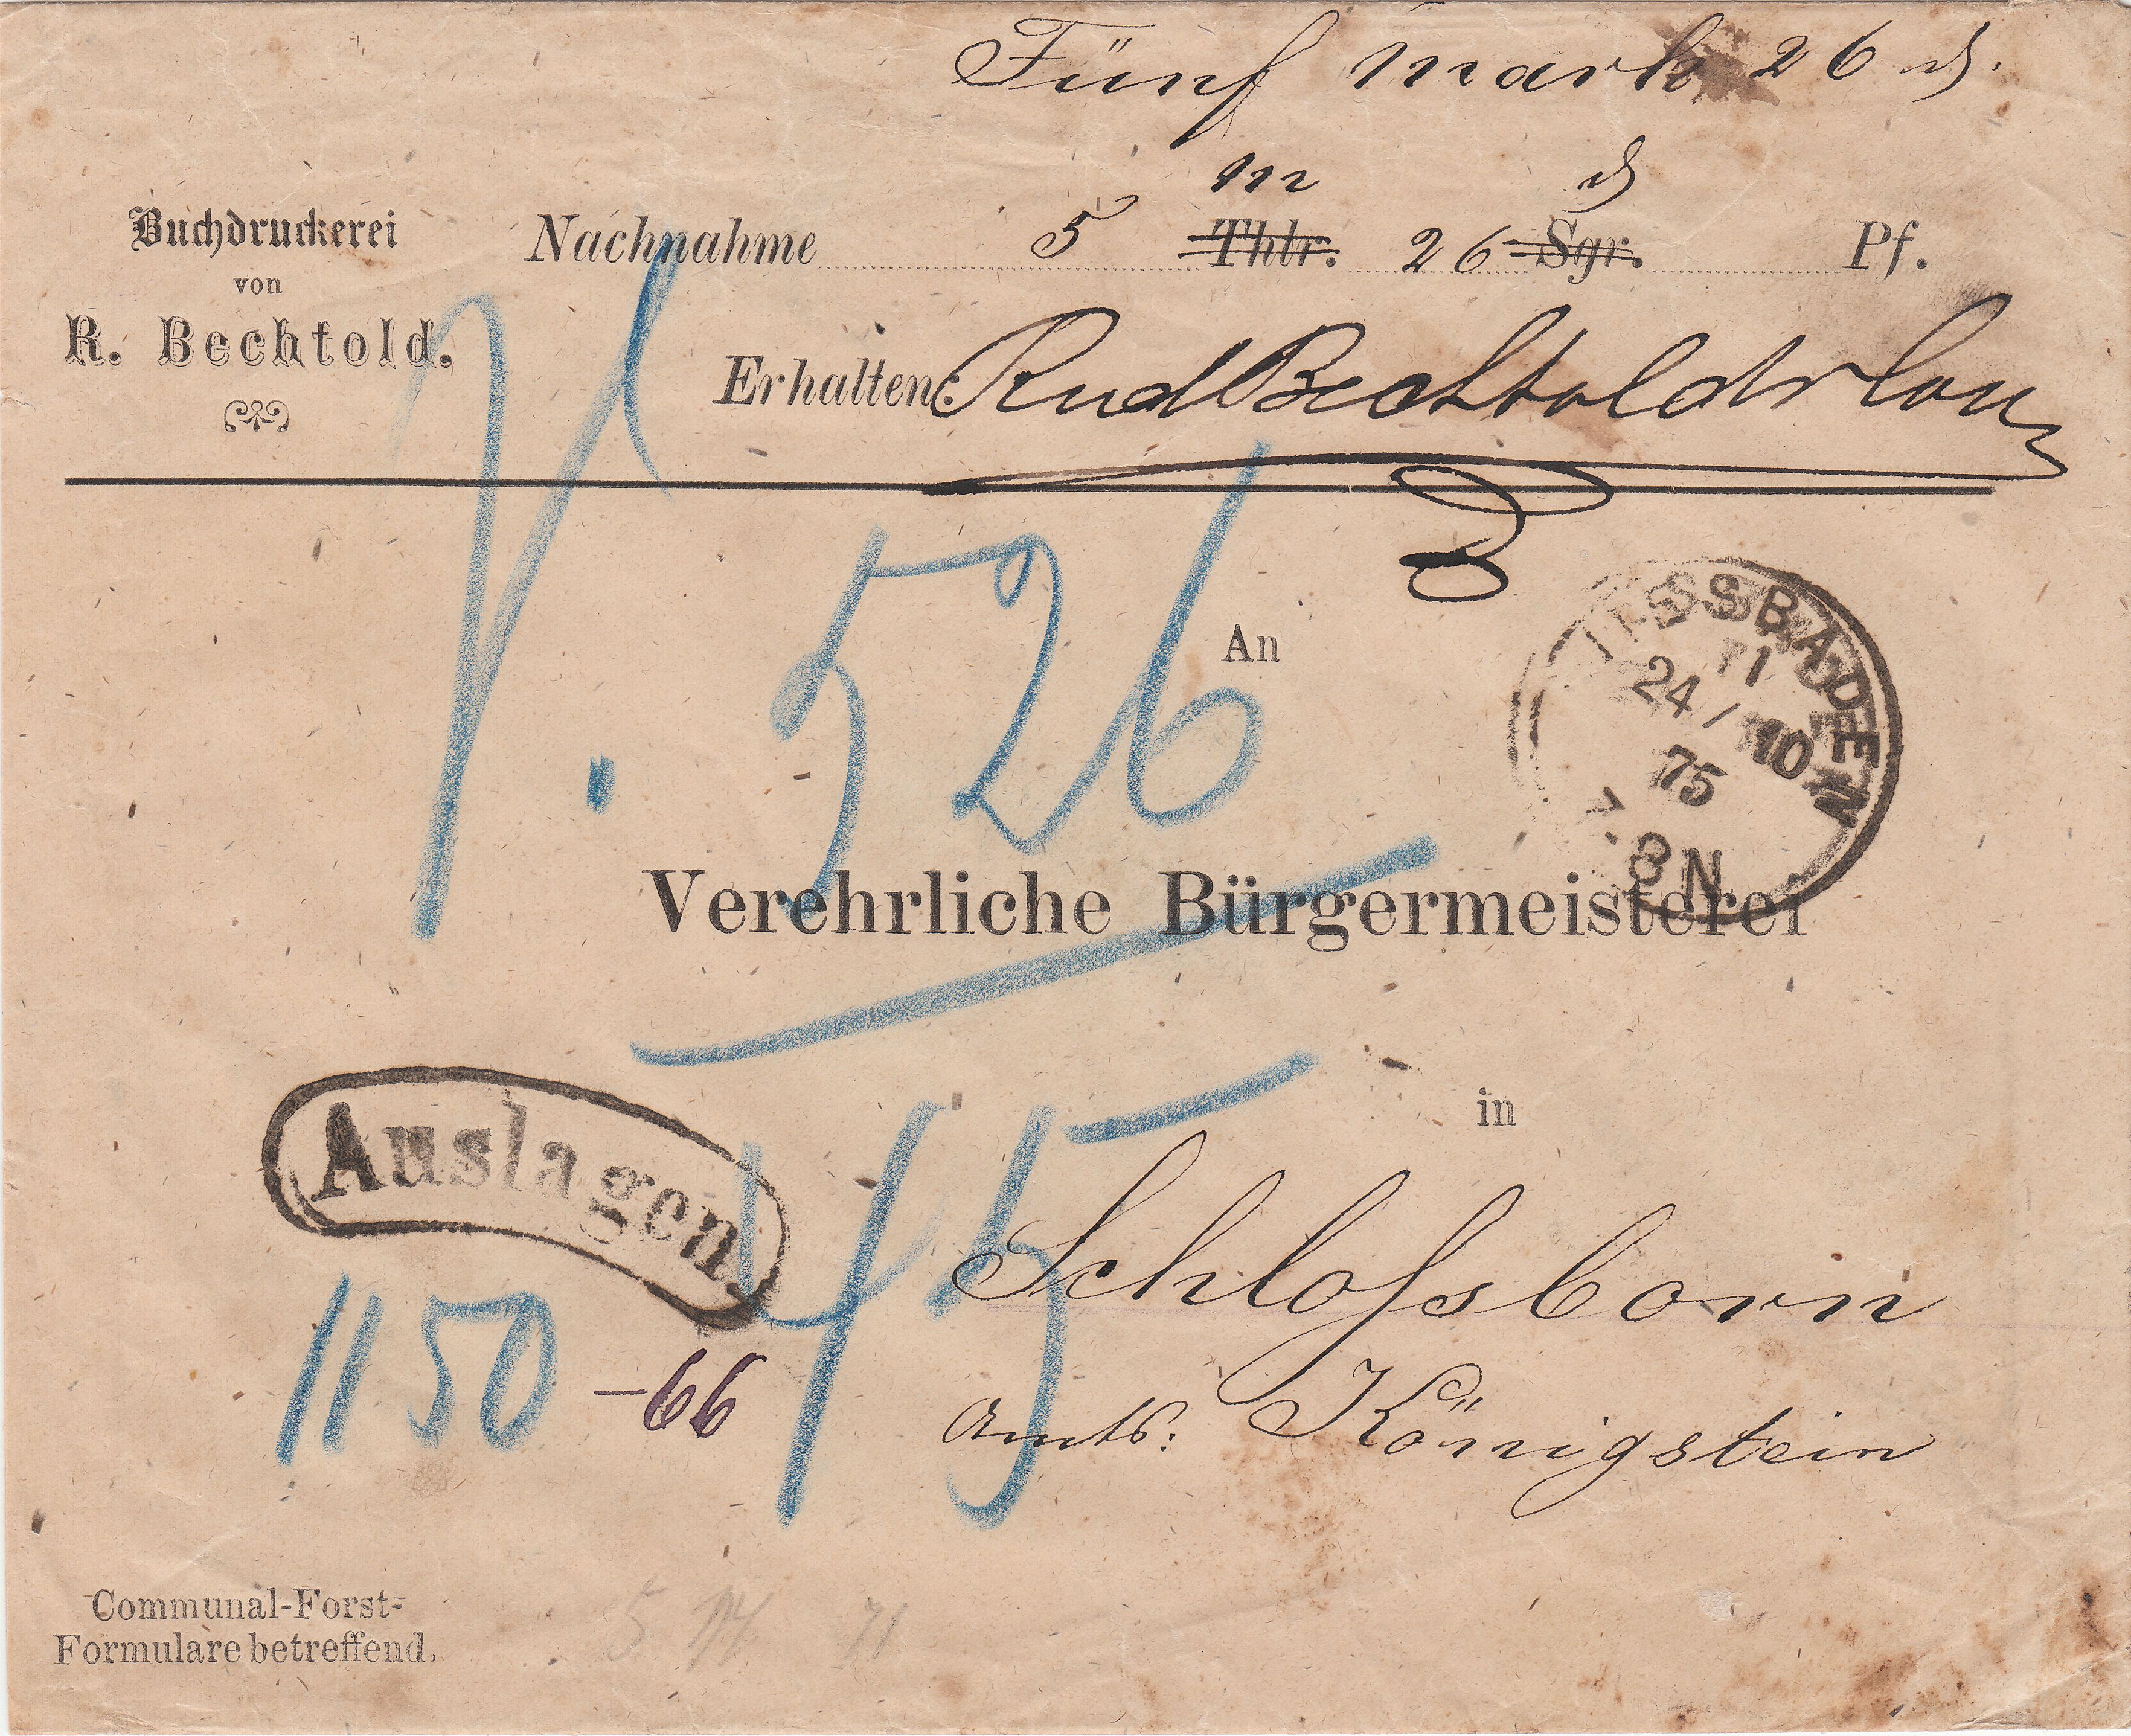 Fünf Mark 26 ₰.
Buchdruckerei
von
R. Bechtold.
m ₰
Nachnahme 5 Thlr. 26 Sgr. Pf.
Erhalten: Rud Bechtold
V. 526
An
WIESSBADEN
24/10
75
7-8N
Verehrliche Bürgermeisterei
in
Auslagen.
45
Schloßborn
1150 -66
Amts: Königstein
Communal-Forst-
Formulare betreffend.
5 71